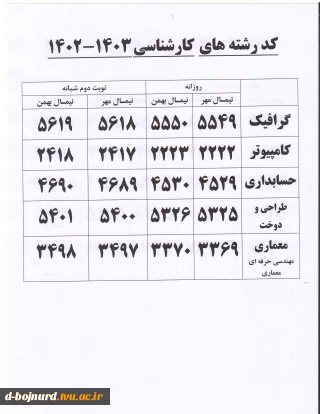 کد رشته های کارشناسی ۱۴۰۳-۱۴۰۲
روزانه نوبت دوم شبانه
نیمسال مهر نیمسال بهمن نیمسال مهر نیمسال بهمن
گرافیک ۵۵۴۹ ۵۵۵۰ ۵۶۱۸ ۵۶۱۹
کامپیوتر ۲۲۲۲ ۲۲۲۳ ۲۴۱۷ ۲۴۱۸
حسابداری ۴۵۲۹ ۴۵۳۰ ۴۶۸۹ ۴۶۹۰
طراحی و دوخت ۵۳۲۵ ۵۳۲۶ ۵۴۰۰ ۵۴۰۱
معماری ۳۳۶۹ ۳۳۷۰ ۳۴۹۷ ۳۴۹۸
مهندسی حرفه ای
معماری
d-bojnurd.tvu.ac.ir